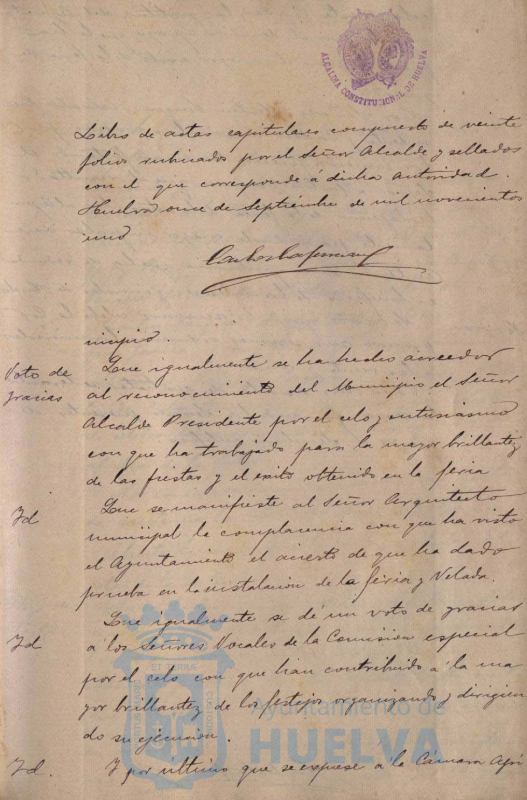 ALCALDIA CONSTITUCIONAL DE HUELVA
Libro de actas capitulares compuesto de veinte
folios rubricados por el Señor Alcalde y sellados
con el que corresponde á dicha autoridad.
Huelva once de Septiembre de mil novecientos
uno
nicipio.
Voto de gracias
Que igualmente se ha hecho acreedor
al reconocimiento del Municipio el Señor
Alcalde Presidente por el celo y entusiasmo
con que ha trabajado para la mayor brillantez
de las fiestas y el exito obtenido en la feria
Id
Que se manifieste al Señor Arquitecto
municipal la complacencia con que ha visto
el Ayuntamiento el acierto de que ha dado
prueba en la instalacion de la feria y Velada.
Id
Que igualmente se dé un voto de gracias
á los Señores Vocales de la Comisión especial
por el celo con que han contribuido á la ma
yor brillantez de los festejos organizando y dirigien
do su ejecucion.
Id.
Y por ultimo que se exprese á la Cámara Agri
Ayuntamiento de
HUELVA